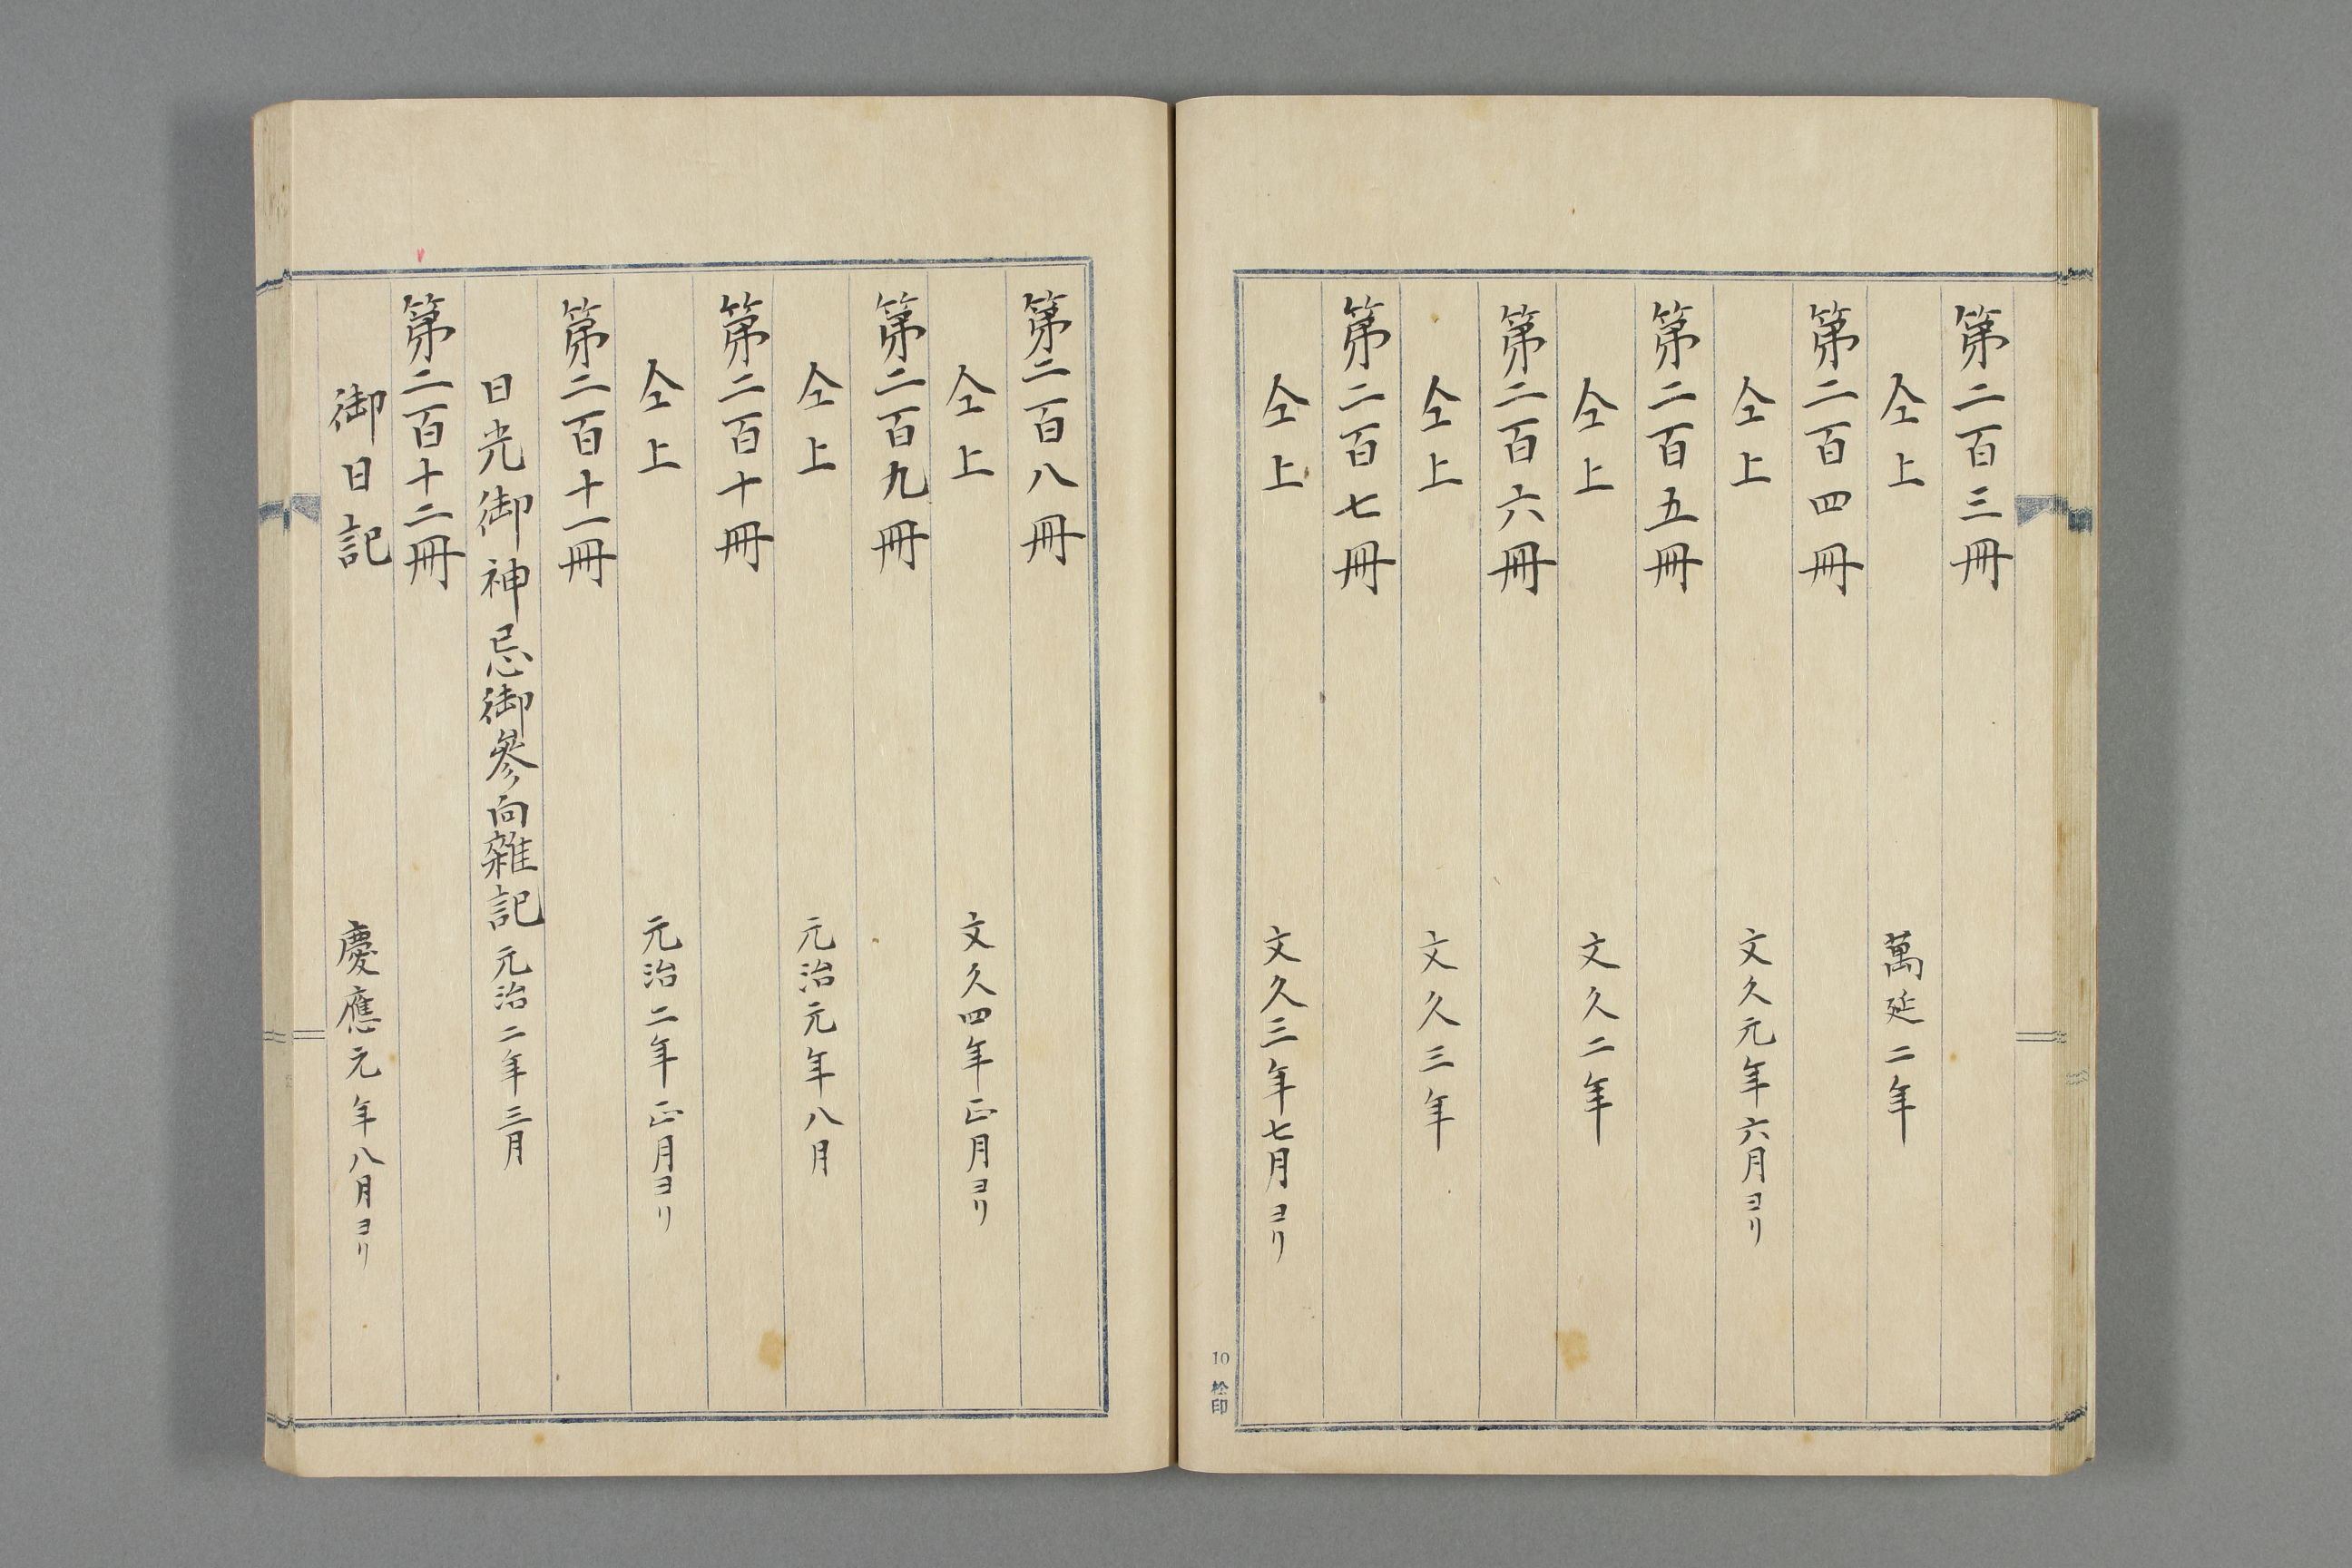 第二百三冊
仝上　萬延二年
第二百四冊
仝上　文久元年六月ヨリ
第二百五冊
仝上　文久二年
第二百六冊
仝上　文久三年
第二百七冊
仝上　文久三年七月ヨリ
10 松印
第二百八冊
仝上　文久四年正月ヨリ
第二百九冊
仝上　元治元年八月
第二百十冊
仝上　元治二年正月ヨリ
第二百十一冊
日光御神忌御参向雑記　元治二年三月
第二百十二冊
御日記　慶應元年八月ヨリ